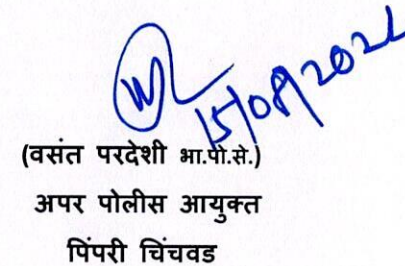 15/08/2022
(वसंत परदेशी भा.पो.से.)
अपर पोलीस आयुक्त
पिंपरी चिंचवड